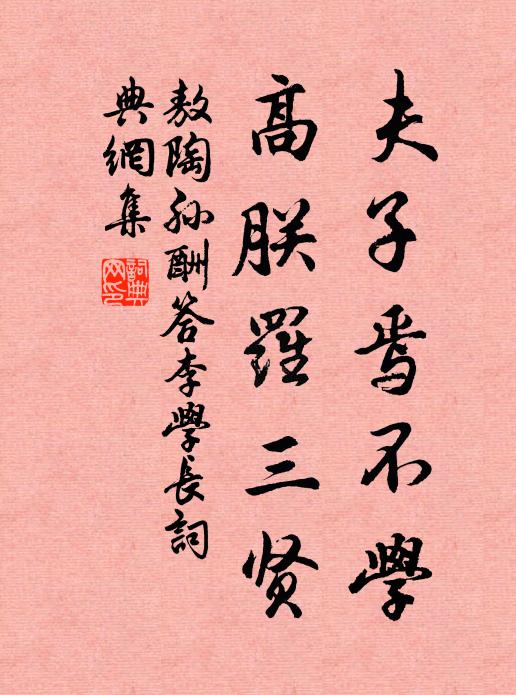 夫子焉不學
高朕羅三贤
敖陶孙酬答李學長詞
典網集
詞典网印